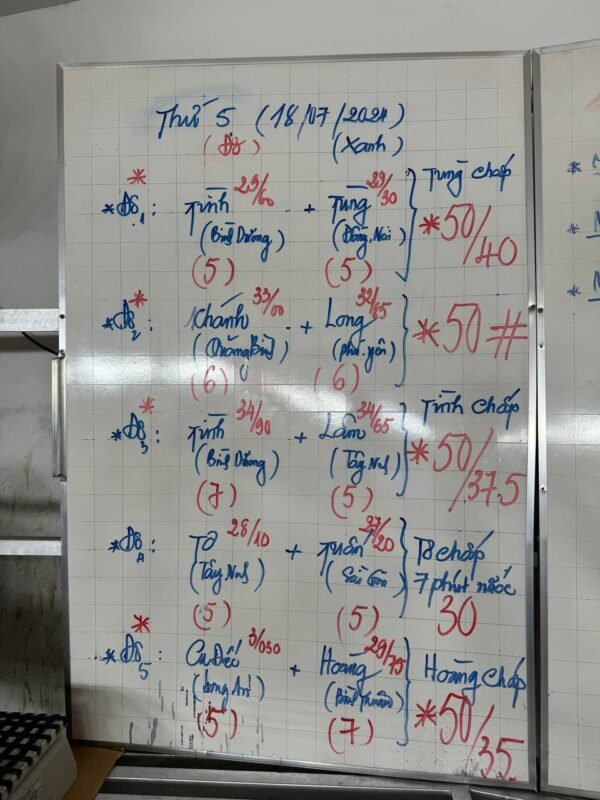 Thứ 5 (18/07/2024)
(Đỏ) (Xanh)
* *Độ 1: Tịnh 29/60 + Tùng 29/30 } Tùng chấp
(Bình Dương) (Đồng Nai) *50/40
(5) (5)
* *Độ 2: Khánh 33/00 + Long 32/65 } *50#
(Quảng Bình) (Phú Yên)
(6) (6)
* *Độ 3: Tịnh 34/90 + Lâm 34/65 } Tịnh chấp
(Bình Dương) (Tây Ninh) *50/37.5
(7) (5)
*Độ 4: Tơ 28/10 + Tuấn 27/20 } Tơ chấp
(Tây Ninh) (Sài Gòn) 7 phút nước
(5) (5) 30
* *Độ 5: Cu Đíc 3/030 + Hoàng 29/75 } Hoàng chấp
(Long An) (Bình Thuận) *50/35
(5) (7)